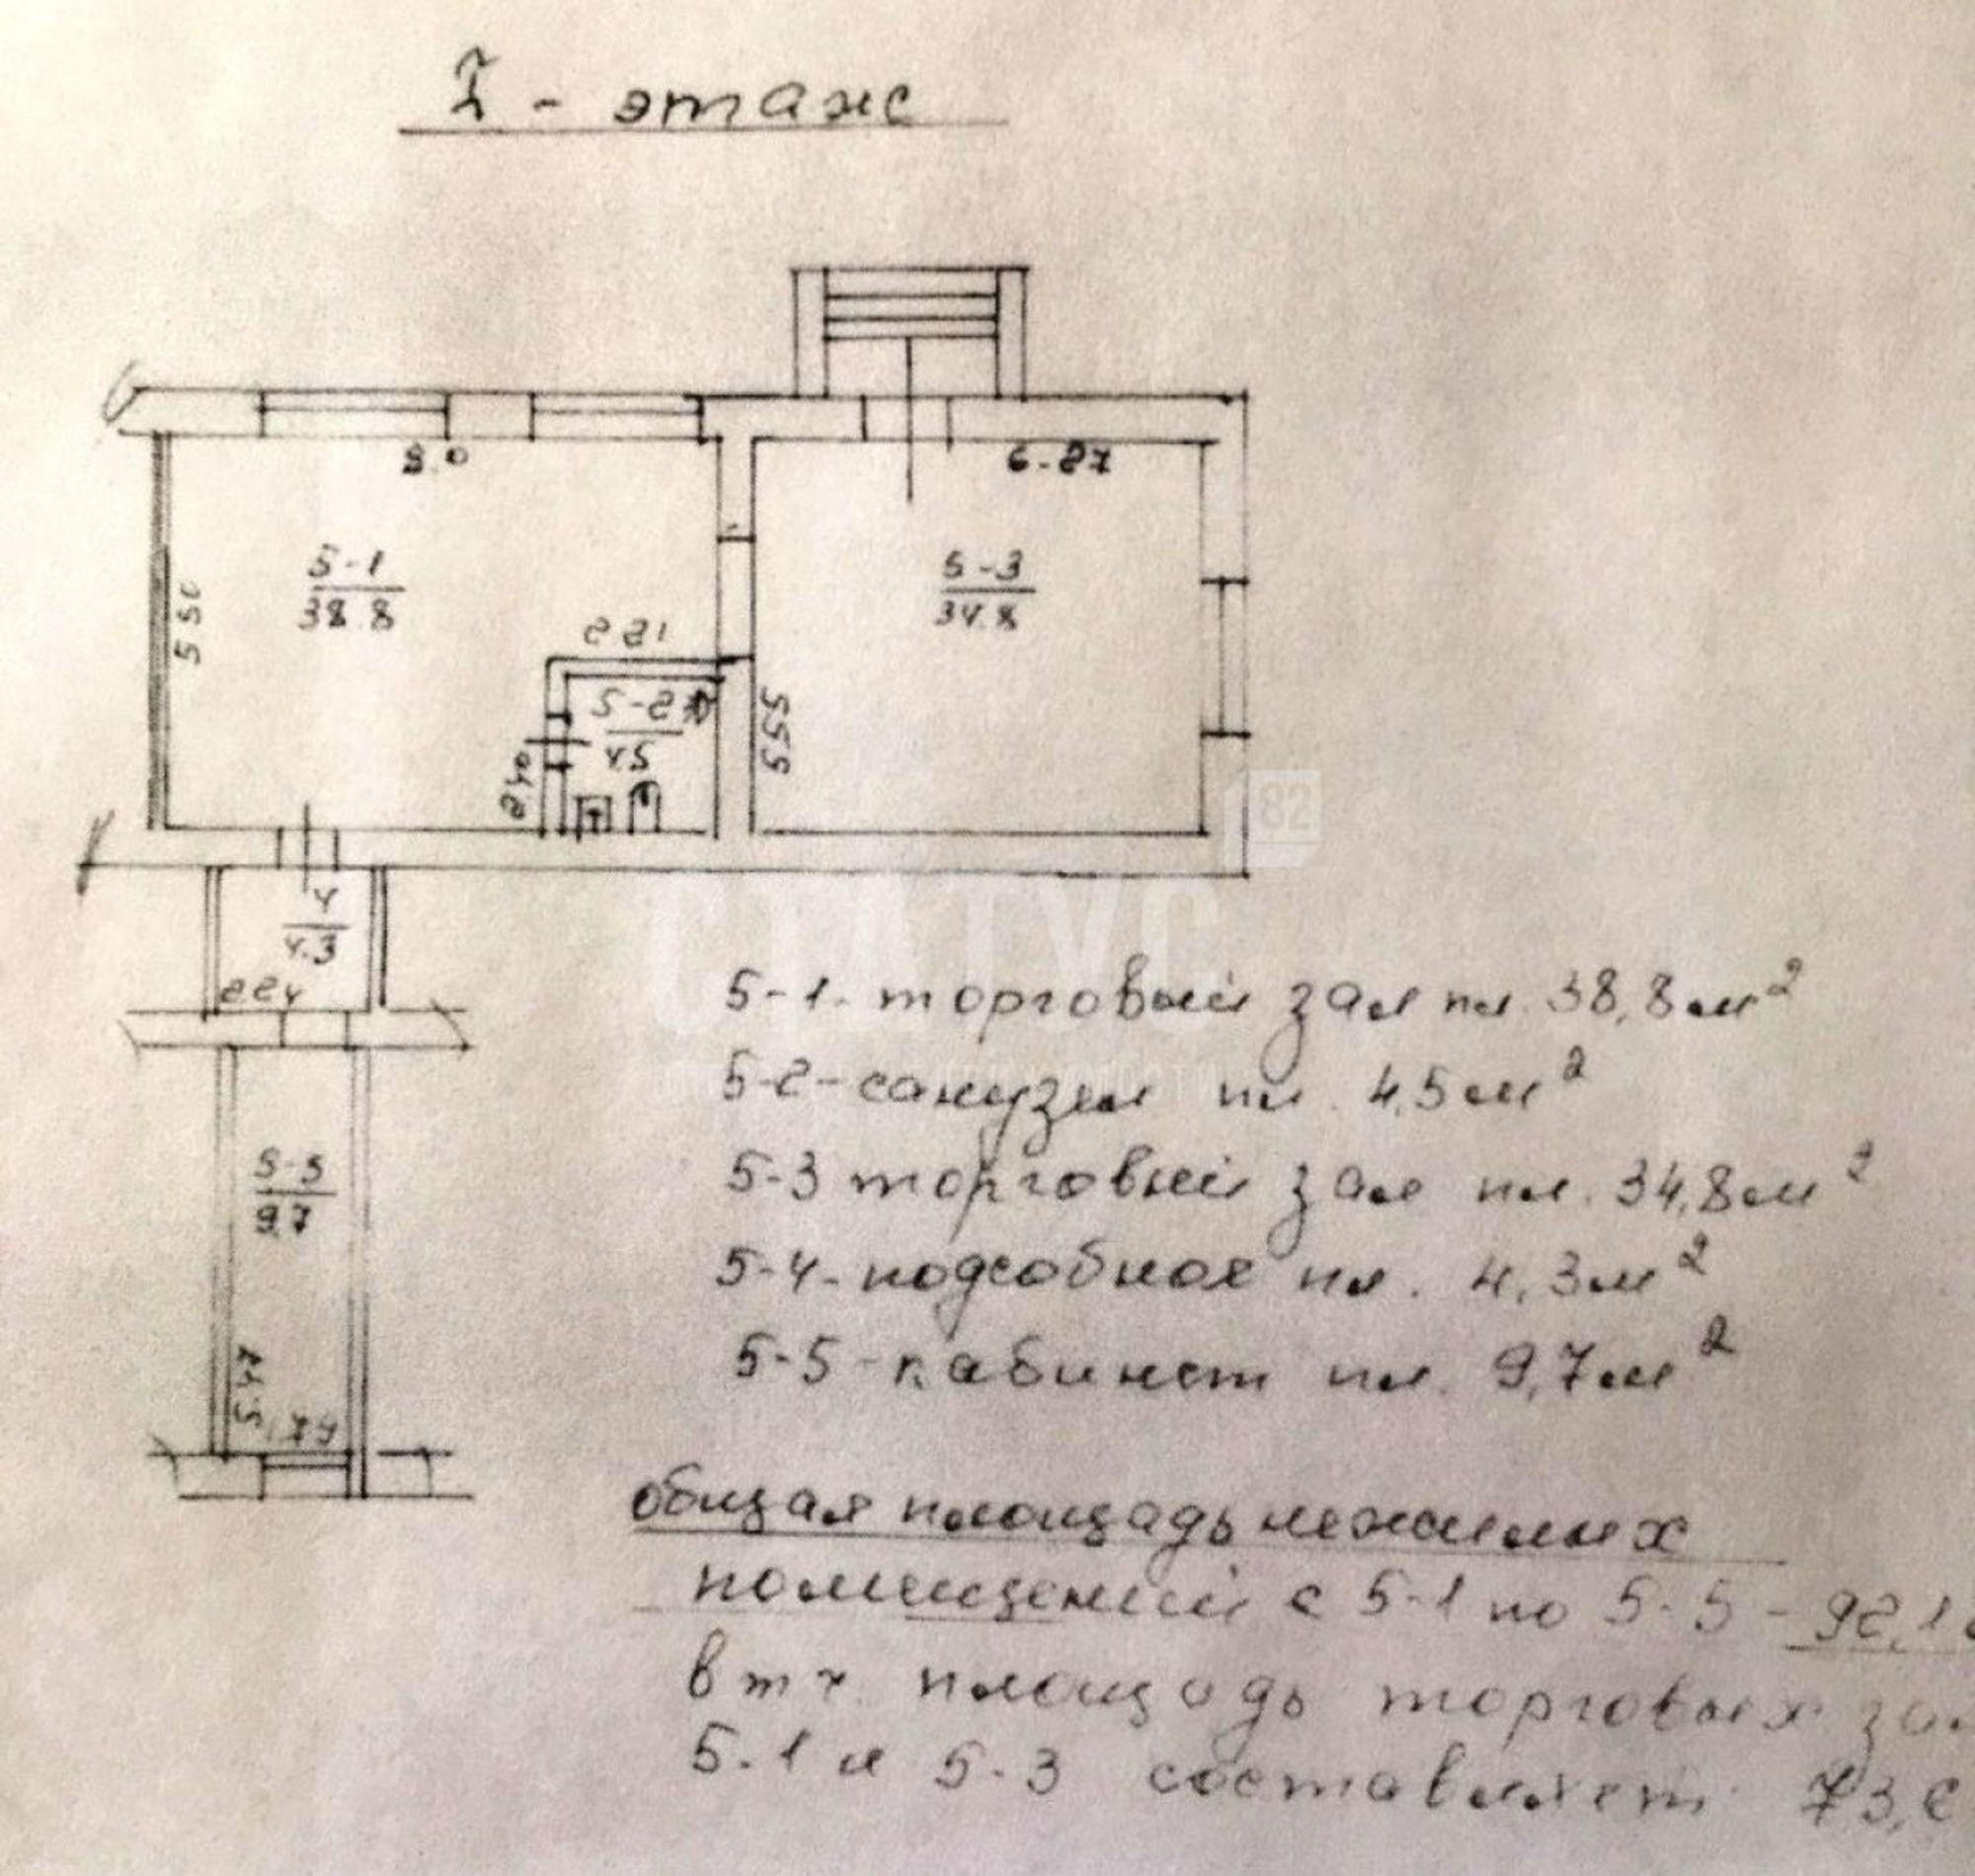 I - этаж
8.0
6.27
5-1
38.8
5-3
34.8
5 50
5-2
4.5
5 55
2 40
82
СТАТУС
4
4.3
5-5
9.7
5.47
5-1. торговый зал пл. 38,8 м²
5-2-санузел пл. 4,5 м²
5-3 торговый зал пл. 34,8 м²
5-4-подсобное пл. 4,3 м²
5-5-кабинет пл. 9,7 м²
общая площадь нежилых
помещений с 5-1 по 5-5 - 92,1
в т.ч. площадь торговых
5-1 и 5-3 составляет 73,